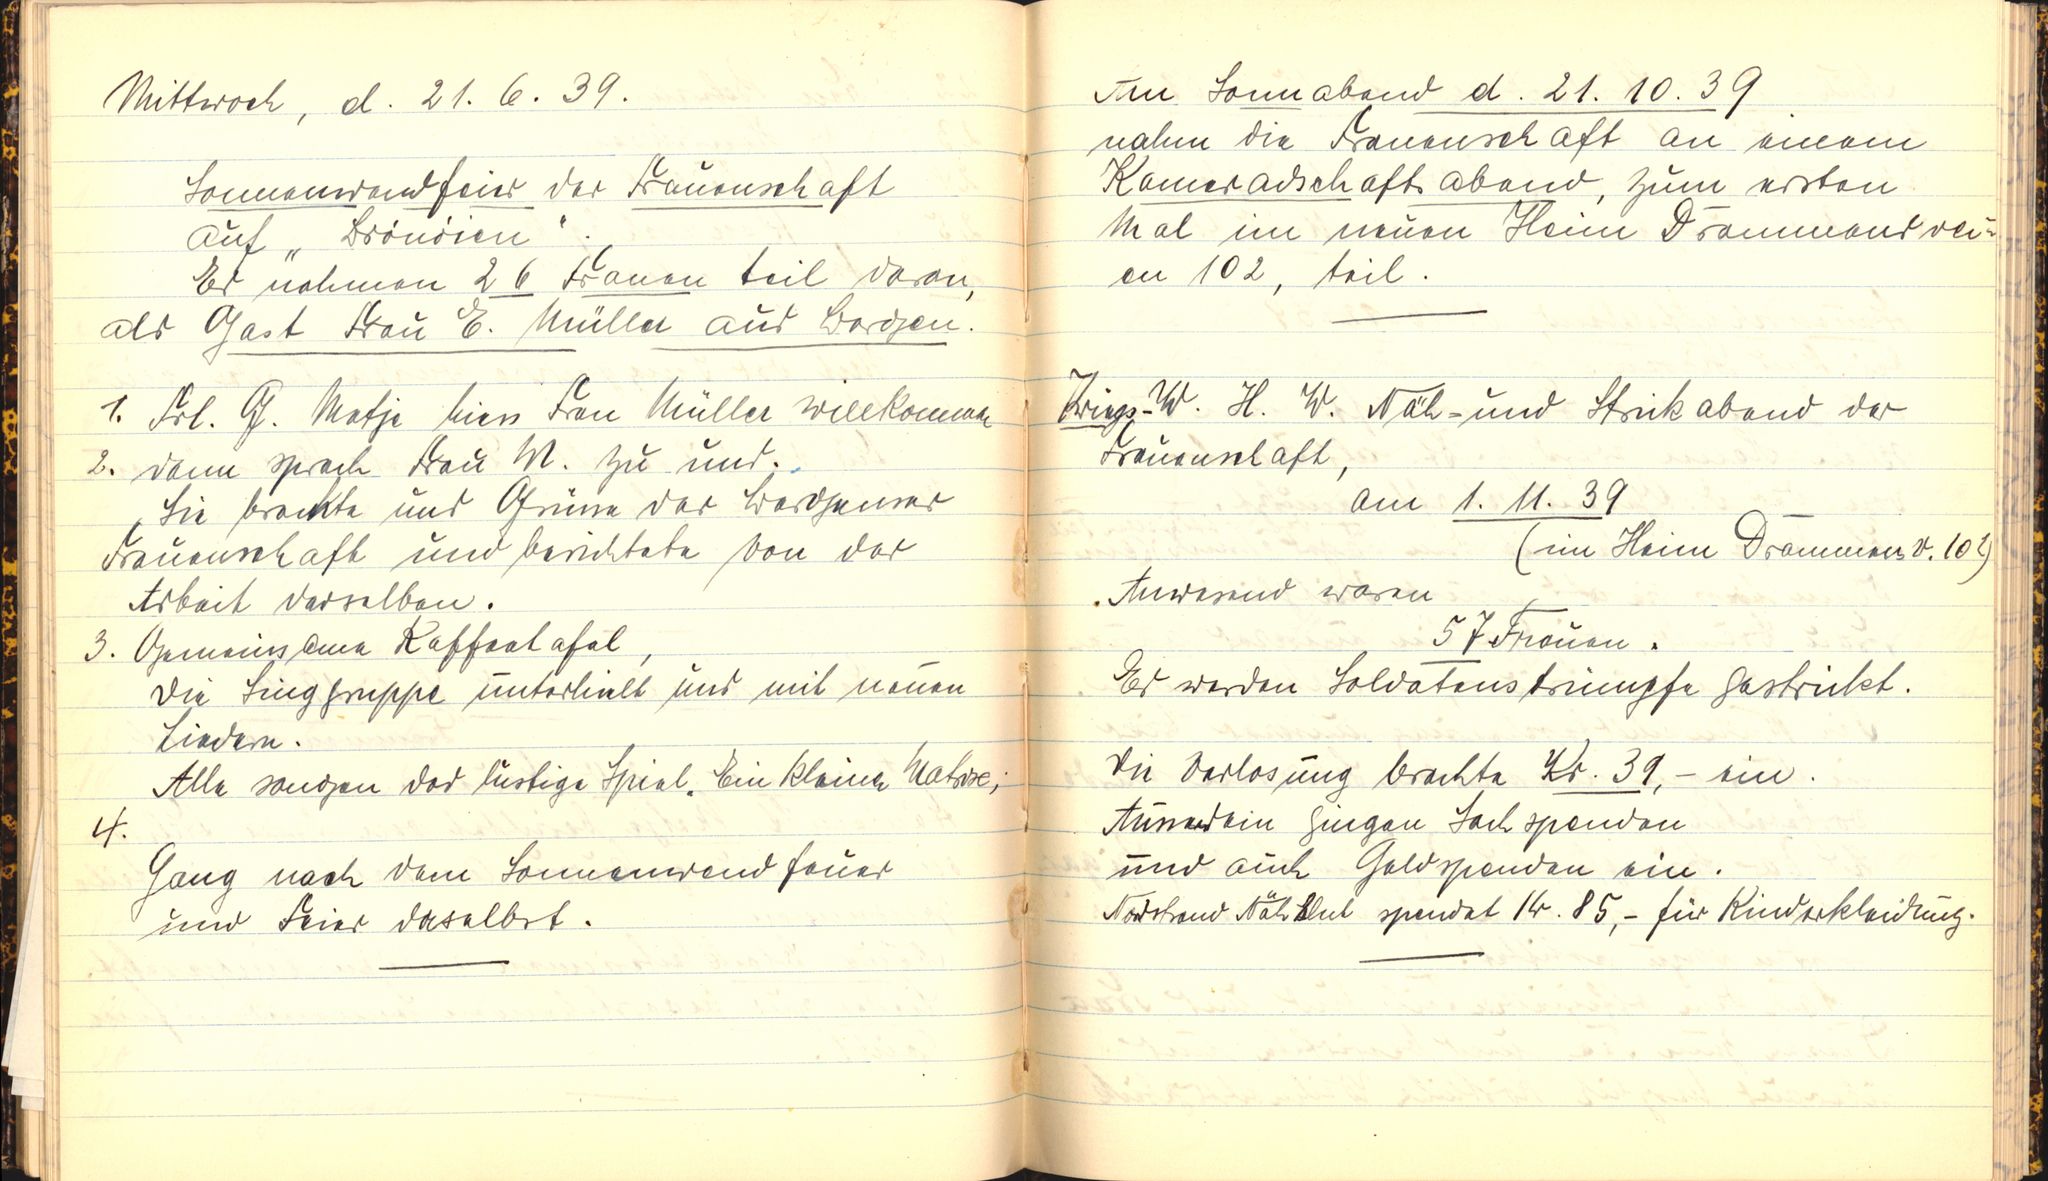 Mittwoch, d. 21. 6. 39.
Sonnenwendfeier der Frauenschaft
auf „Brönöien“.
Es nahmen 26 Frauen teil daran,
als Gast Frau E. Müller aus Bergen.
1. Frl. G. Matje hiess Frau Müller willkommen
2. dann sprach Frau M. zu uns.
Sie brachte uns Grüsse der Bergenser
Frauenschaft und berichtete von der
Arbeit derselben.
3. Gemeinsame Kaffeetafel,
die Singgruppe unterhielt uns mit neuen
Liedern.
Alle sangen das lustige Spiel „Ein kleine Matrose“,
4.
Gang nach dem Sonnenwendfeuer
und Feier daselbst.
Am Sonnabend d. 21. 10. 39
nahm die Frauenschaft an einem
Kameradschaftsabend, zum ersten
Mal im neuen Heim Drammensvei-
en 102, teil.
Kriegs-W. H. W. Näh- und Strickabend der
Frauenschaft,
am 1. 11. 39
(im Heim Drammens v. 102)
Anwesend waren
57 Frauen.
Es werden Soldatenstrümpfe gestrickt.
Die Verlosung brachte Kr. 39,- ein.
Ausserdem gingen Sachspenden
und auch Geldspenden ein.
Nordstrand Näh spendet Kr. 85,- für Kinderkleidung.